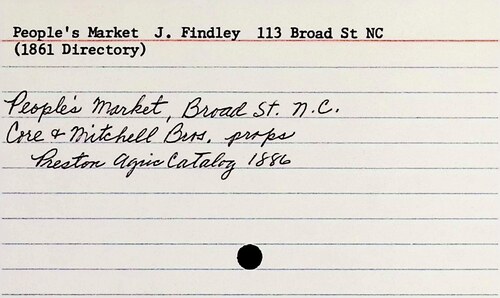 People's Market J. Findley 113 Broad St NC
(1861 Directory)
People's Market, Broad St. N.C.
Core & Mitchell Bros. props
Preston Agric Catalog 1886